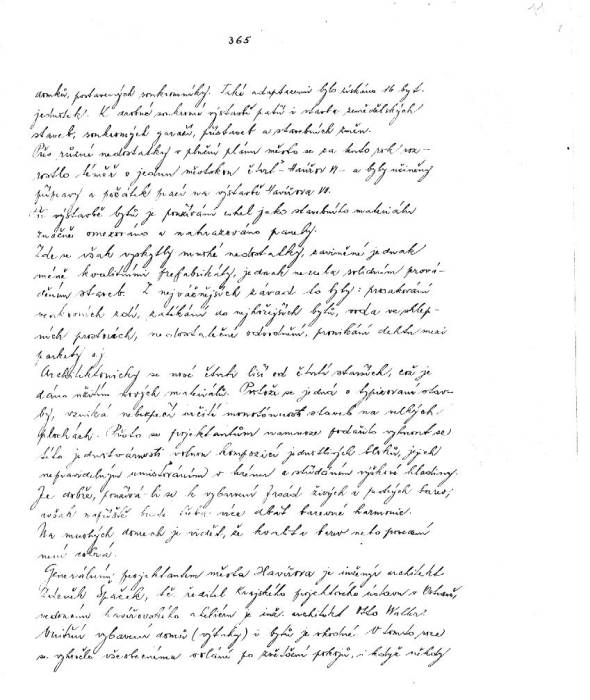 365
domků, postavených soukromníky. Také adaptacemi bylo získáno 16 byt.
jednotek. K drobné soukromé výstavbě patří i stavba zemědělských
staveb, soukromých garáží, přístaveb a stavebních změn.
Přes různé nedostatky v plnění plánu město se za tento rok roz-
rostlo téměř o jednu městskou čtvrť - Havířov VI - a byly učiněny
přípravy a počátek prací na výstavbě Havířova VII.
Při výstavbě bytů je používání cihel jako stavebního materiálu
značně omezováno a nahrazováno panely.
Zde se však vyskytly mnohé nedostatky, zaviněné jednak
méně kvalitními prefabrikáty, jednak ne zcela solidním prová-
děním staveb. Z nejvážnějších závad to byly: prosakování
venkovních zdí, zatékání do nejhořejších bytů, voda ve sklep-
ních prostorách, nedostatečné odvodnění, pronikání dehtu mezi
parkety aj.
Architektonicky se nové čtvrtě liší od čtvrtí starších, což je
dáno užitím nových materiálů. Protože se jedná o typizované stav-
by, vzniká nebezpečí určité monotónnosti staveb na velkých
plochách. Přesto se projektantům namnoze podařilo vyhnout se
této jednotvárnosti volnou kompozicí jednotlivých bloků, jejich
nepravidelným umístěním v terénu a střídáním výškové hladiny.
Je dobře, používá-li se k vybarvení fasád živých a pestrých barev,
avšak napříště bude třeba více dbát barevné harmonie.
Na mnohých domech je vidět, že kvalita barev nebo provedení
není dobrá.
Generálním projektantem města Havířova je inženýr architekt
Zdeněk Špaček, t.č. ředitel Krajského projektového ústavu v Ostravě,
vedoucím havířovského atelieru je inž. architekt Otto
Vnitřní vybavení domů (výtahy) i bytů je vhodné. V tomto roce
se vyhovělo všeobecnému volání po zvětšení pokojů, i když někdy